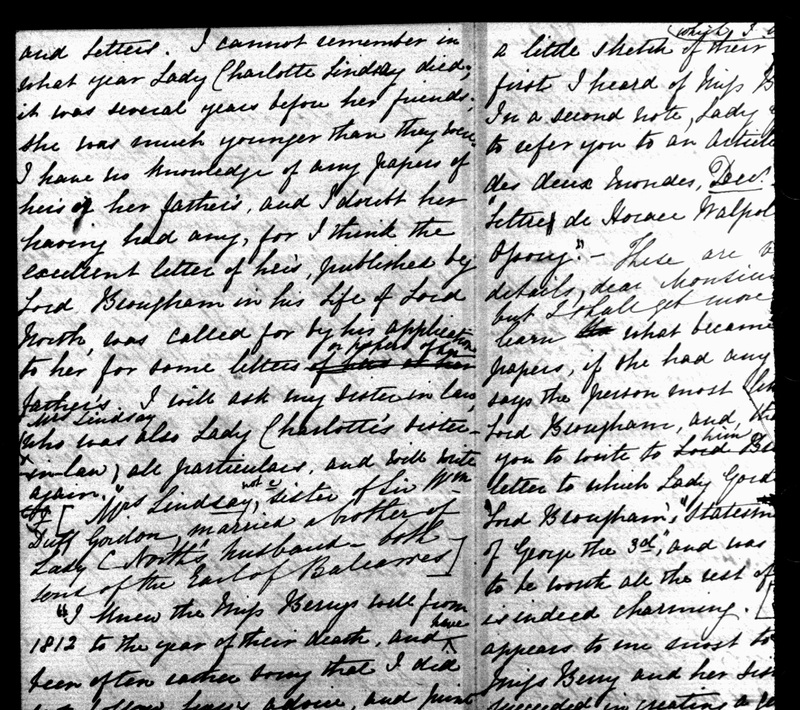 and letters. I cannot remember in
what year Lady Charlotte Lindsay died;
it was several years before her friends;
she was much younger than they were.
I have no knowledge of any papers of
hers or her father's, and I doubt her
having had any, for I think the
excellent letter of hers, published by
Lord Brougham in his Life of Lord
North, was called for by his application
to her for some letters or papers of her
father's. I will ask my sister in law,
Mrs Lindsay
who was also Lady Charlotte's sister-
in-law, all particulars, and will write
again."
[Mrs Lindsay, sister of Sir Wm
Duff Gordon, married a brother of
Lady C North's husband - both
sons of the Earl of Balcarres]
"I knew the Miss Berrys well from
1812 to the year of their death, and have
been often rather sorry that I did
advice, and
which 3
a little sketch of their
first I heard of Miss B
In a second note, Lady G
to refer you to an article
des deux Mondes, Dec.
"Lettres de Horace Walpol
Ossory." - These are
details, dear Monsieur
but I shall get more
learn what became
papers, if she had any
says the person most
Lord Brougham, and,
you to write to him
letter to which Lady Gord
Lord Brougham's, "Statesm
of George the 3d", and was
to be worth all the rest of
is indeed charming. [
appears to me most to
Miss Berry and her sis
succeeded in creating a